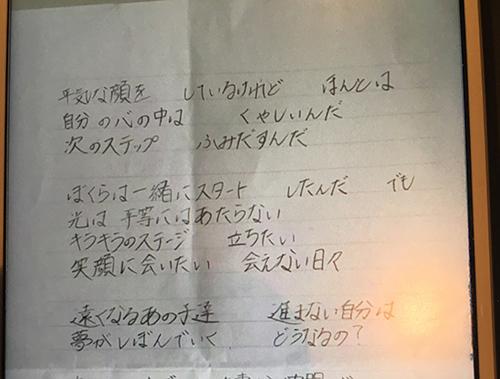 平気な顔を しているけれど ほんとは
自分の心の中は くやしいんだ
次のステップ ふみだすんだ
ぼくらは一緒にスタート したんだ でも
光は平等にはあたらない
キラキラのステージ 立ちたい
笑顔に会いたい 会えない日々
遠くなるあの子達 進まない自分は
夢がしぼんでいく どうなるの?